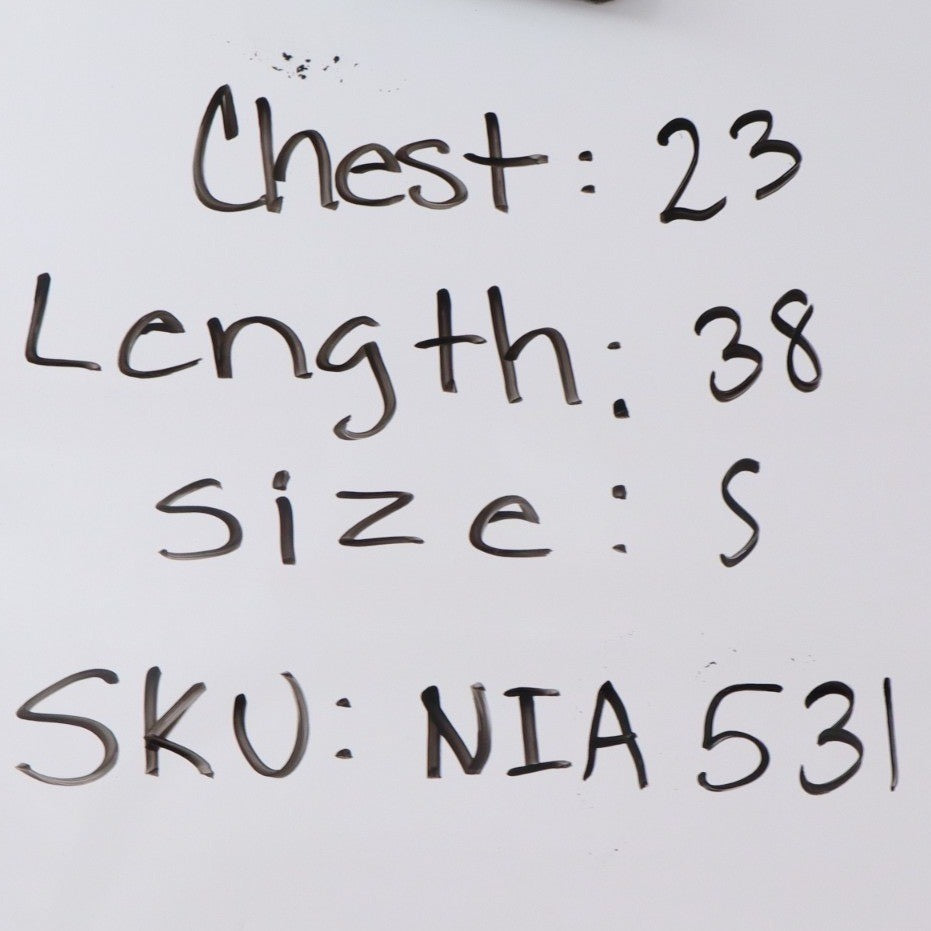 Chest: 23
Length: 38
Size: S
SKU: NIA 531